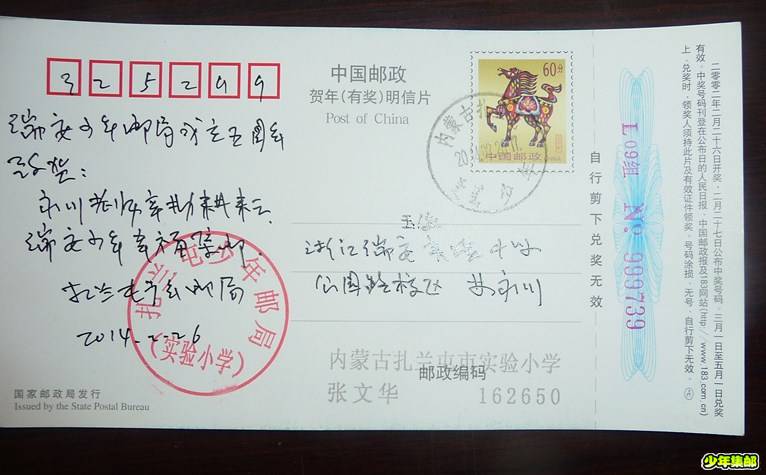 325299
中国邮政
贺年(有奖)明信片
Post of China
60分
中国邮政
瑞安少年邮局成立五周年
致贺:
瑞安少年幸福
扎兰屯少年邮局
2014.2.26
扎兰屯少年邮局
(实验小学)
内蒙古扎
浙江瑞安
公园路校区 苏永川
内蒙古扎兰屯市实验小学
张文华
邮政编码
162650
国家邮政局发行
Issued by the State Postal Bureau
自行剪下兑奖无效
L09组 No:999739
二零零二年二月二十六日开奖,二月二十七日公布中奖号码,三月一日至五月一日兑奖
有效。中奖号码刊登在公布日的人民日报、中国邮政报及183网站(http://www.183.com.cn)
上。兑奖时,领奖人须持此片及有效证件领奖。号码涂损、无号、自行剪下无效。
少年集邮